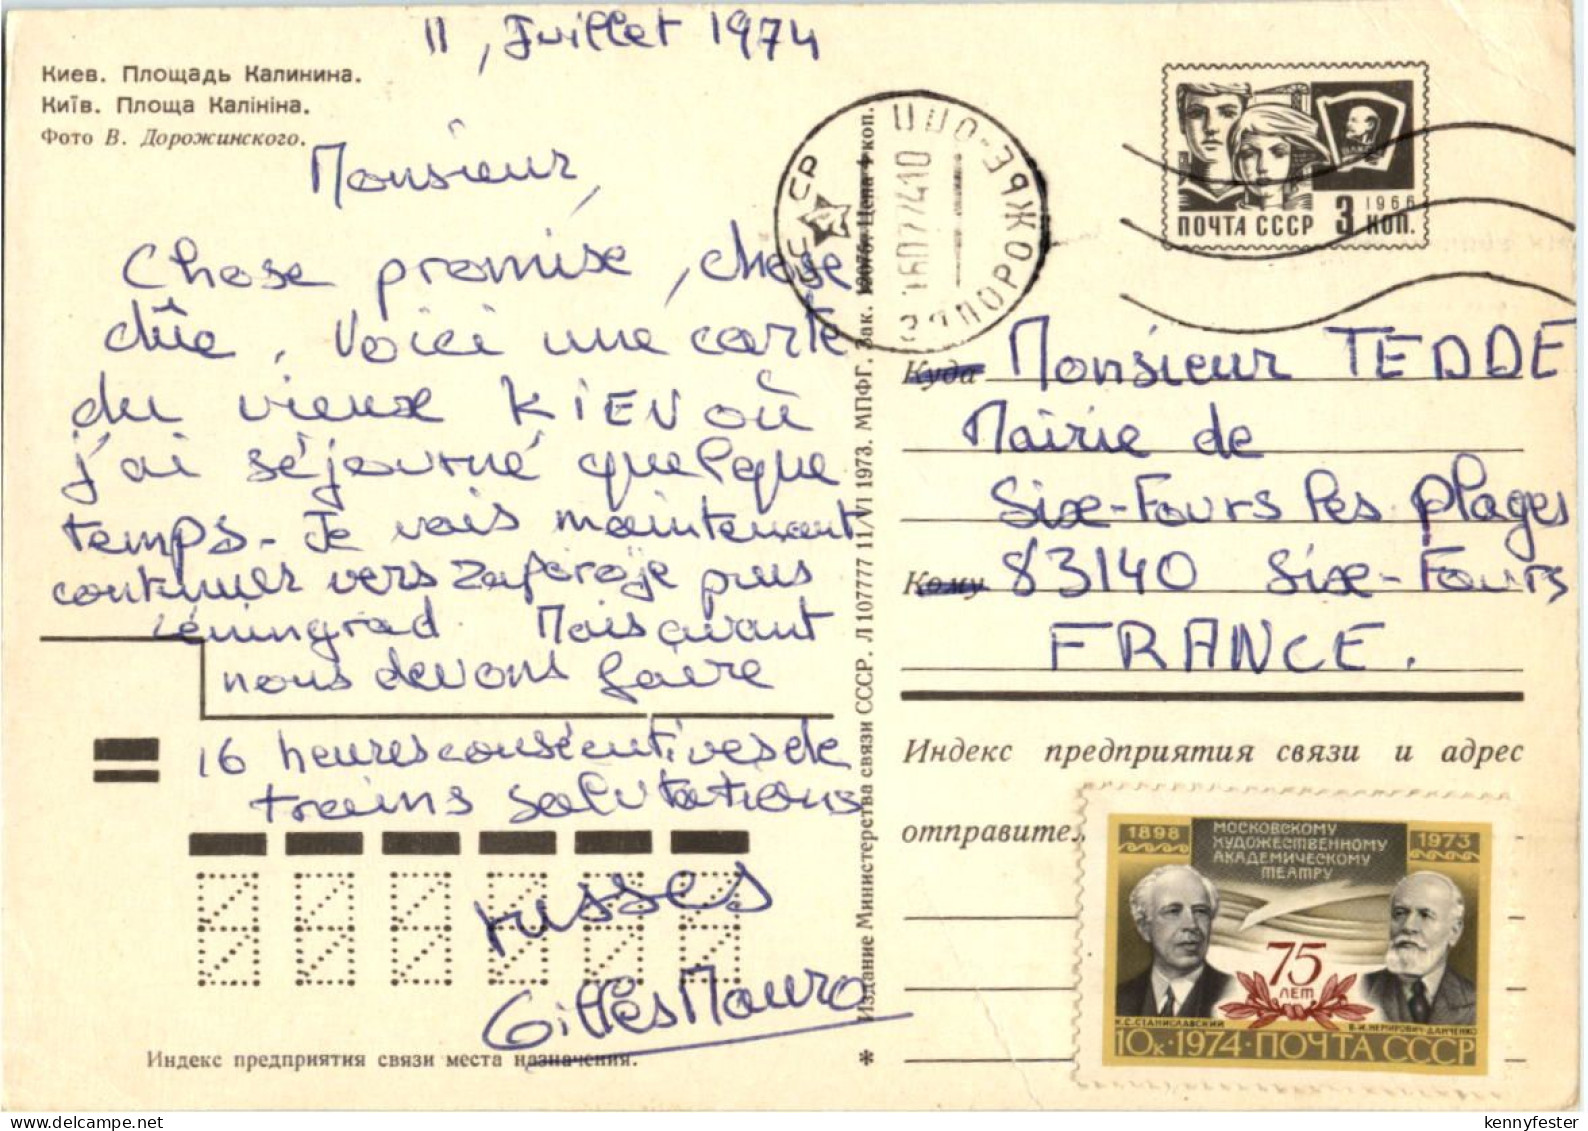 11, Juillet 1974
Киев. Площадь Калинина.
Київ. Площа Калініна.
Фото В. Дорожинского.
Monsieur,
Chose promise, chose
dûe. Voici une carte
du vieux KIEV où
j'ai séjourné quelque
temps. Je vais maintenant
continuer vers Zaporoje puis
Léningrad. Mais avant
nous devons faire
16 heures consécutives de
trains salutations
russes
Gilles Mauro
Индекс предприятия связи места назначения.
Издание Министерства связи СССР. Л 107777 11/VI 1973. МПФГ. Зак. Цена 4 коп.
*
СССР
ЗАПОРОЖЬЕ
ПОЧТА СССР 3 КОП.
1966
Куда Monsieur TEDDE
Mairie de
Six-Fours les plages
Кому 83140 Six-Fours
FRANCE.
Индекс предприятия связи и адрес
отправите
1898 МОСКОВСКОМУ 1973
ХУДОЖЕСТВЕННОМУ
АКАДЕМИЧЕСКОМУ
ТЕАТРУ
75
ЛЕТ
К.С.СТАНИСЛАВСКИЙ В.И.НЕМИРОВИЧ-ДАНЧЕНКО
10к·1974·ПОЧТА СССР
kennyfester